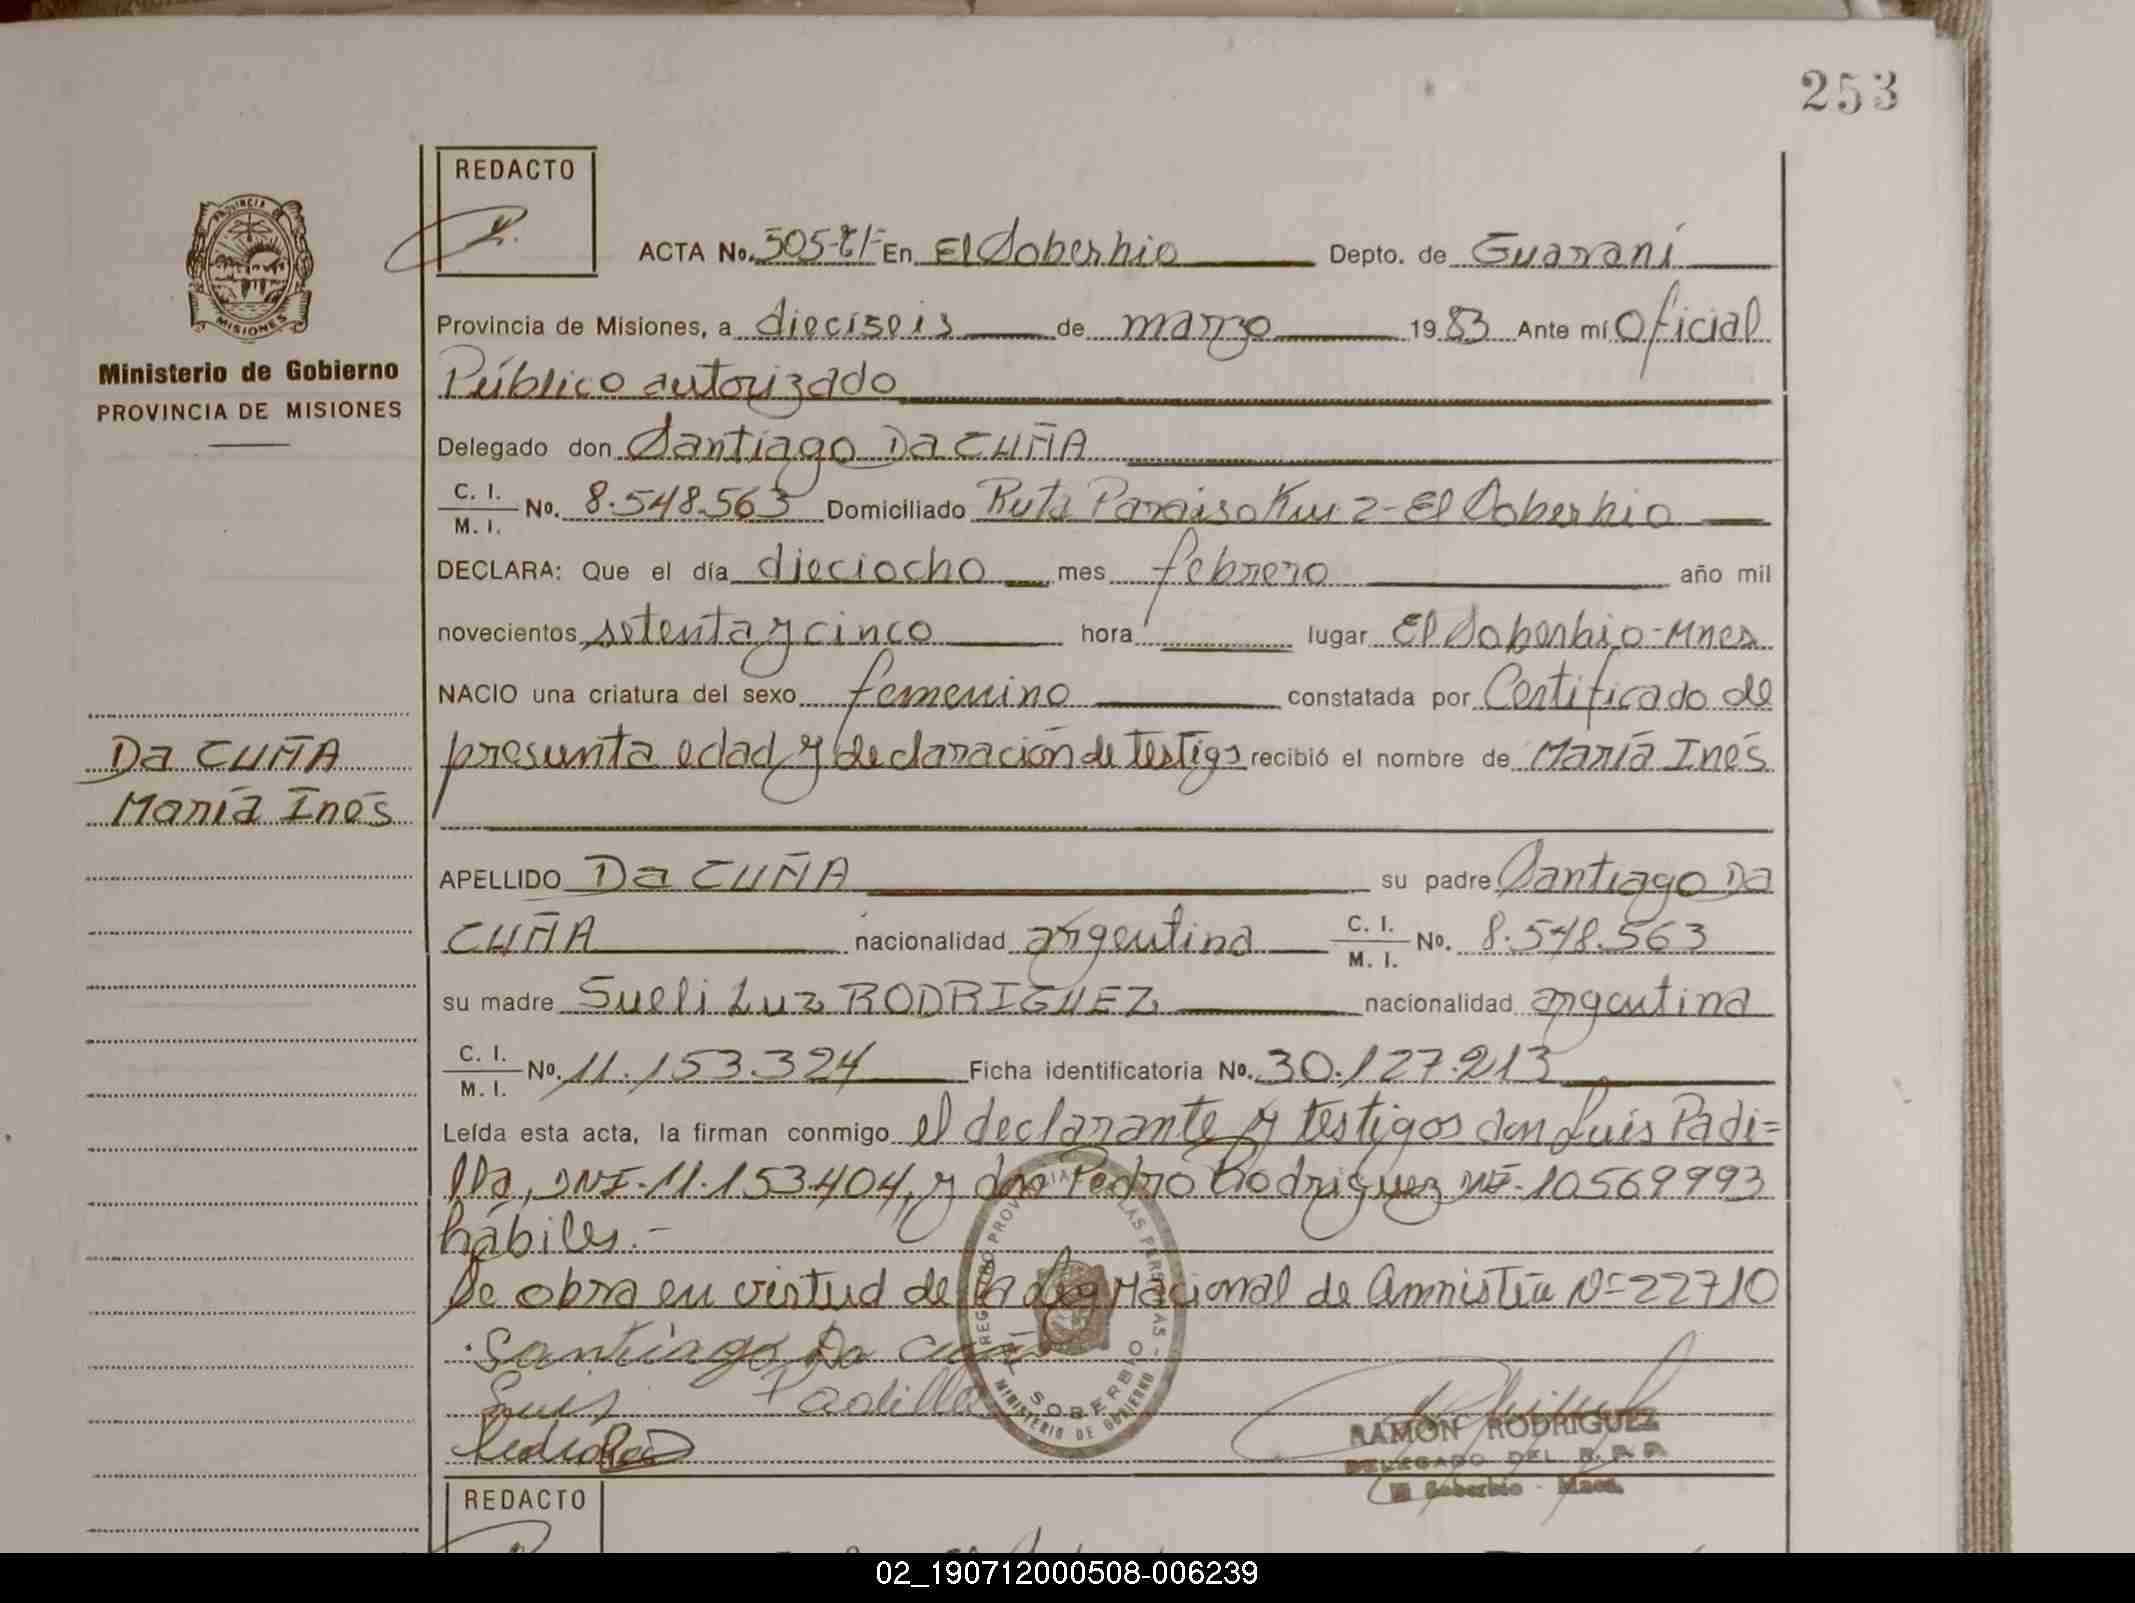 253
REDACTO
ACTA No. 505-t/- En El Soberbio Depto. de Guaraní
Provincia de Misiones, a dieciseis de marzo 1983 Ante mí Oficial
Ministerio de Gobierno
PROVINCIA DE MISIONES
Público autorizado
Delegado don Santiago Da CUÑA
C. I.
M. I. No. 8.548.563 Domiciliado Ruta Paraiso Km 2-El Soberbio
DECLARA: Que el día dieciocho mes febrero año mil
novecientos setenta y cinco hora lugar El Soberbio-Mnes
NACIO una criatura del sexo femenino constatada por Certificado de
presunta edad y declaración de testigs recibió el nombre de María Inés
Da CUÑA
María Inés
APELLIDO Da CUÑA su padre Santiago Da
CUÑA nacionalidad argentina C. I.
M. I. No. 8.548.563
su madre Sueli Luz RODRIGUEZ nacionalidad argentina
C. I.
M. I. No. 11.153.324 Ficha identificatoria No. 30.127.213
Leída esta acta, la firman conmigo el declarante y testigos don Luis Padi=
lla, DNI-11.153.404, y don Pedro Rodriguez DNI-10569993
hábiles.-
Se obra en virtud de la Ley Nacional de Amnistía Nº 22710
Santiago Da Cuña
Luis Padilla
REGISTRO PROVINCIAL DE LAS PERSONAS
EL SOBERBIO
MINISTERIO DE GOBIERNO
RAMON RODRIGUEZ
DELEGADO DEL R. P. P.
El Soberbio - Mnes.
REDACTO
02_190712000508-006239